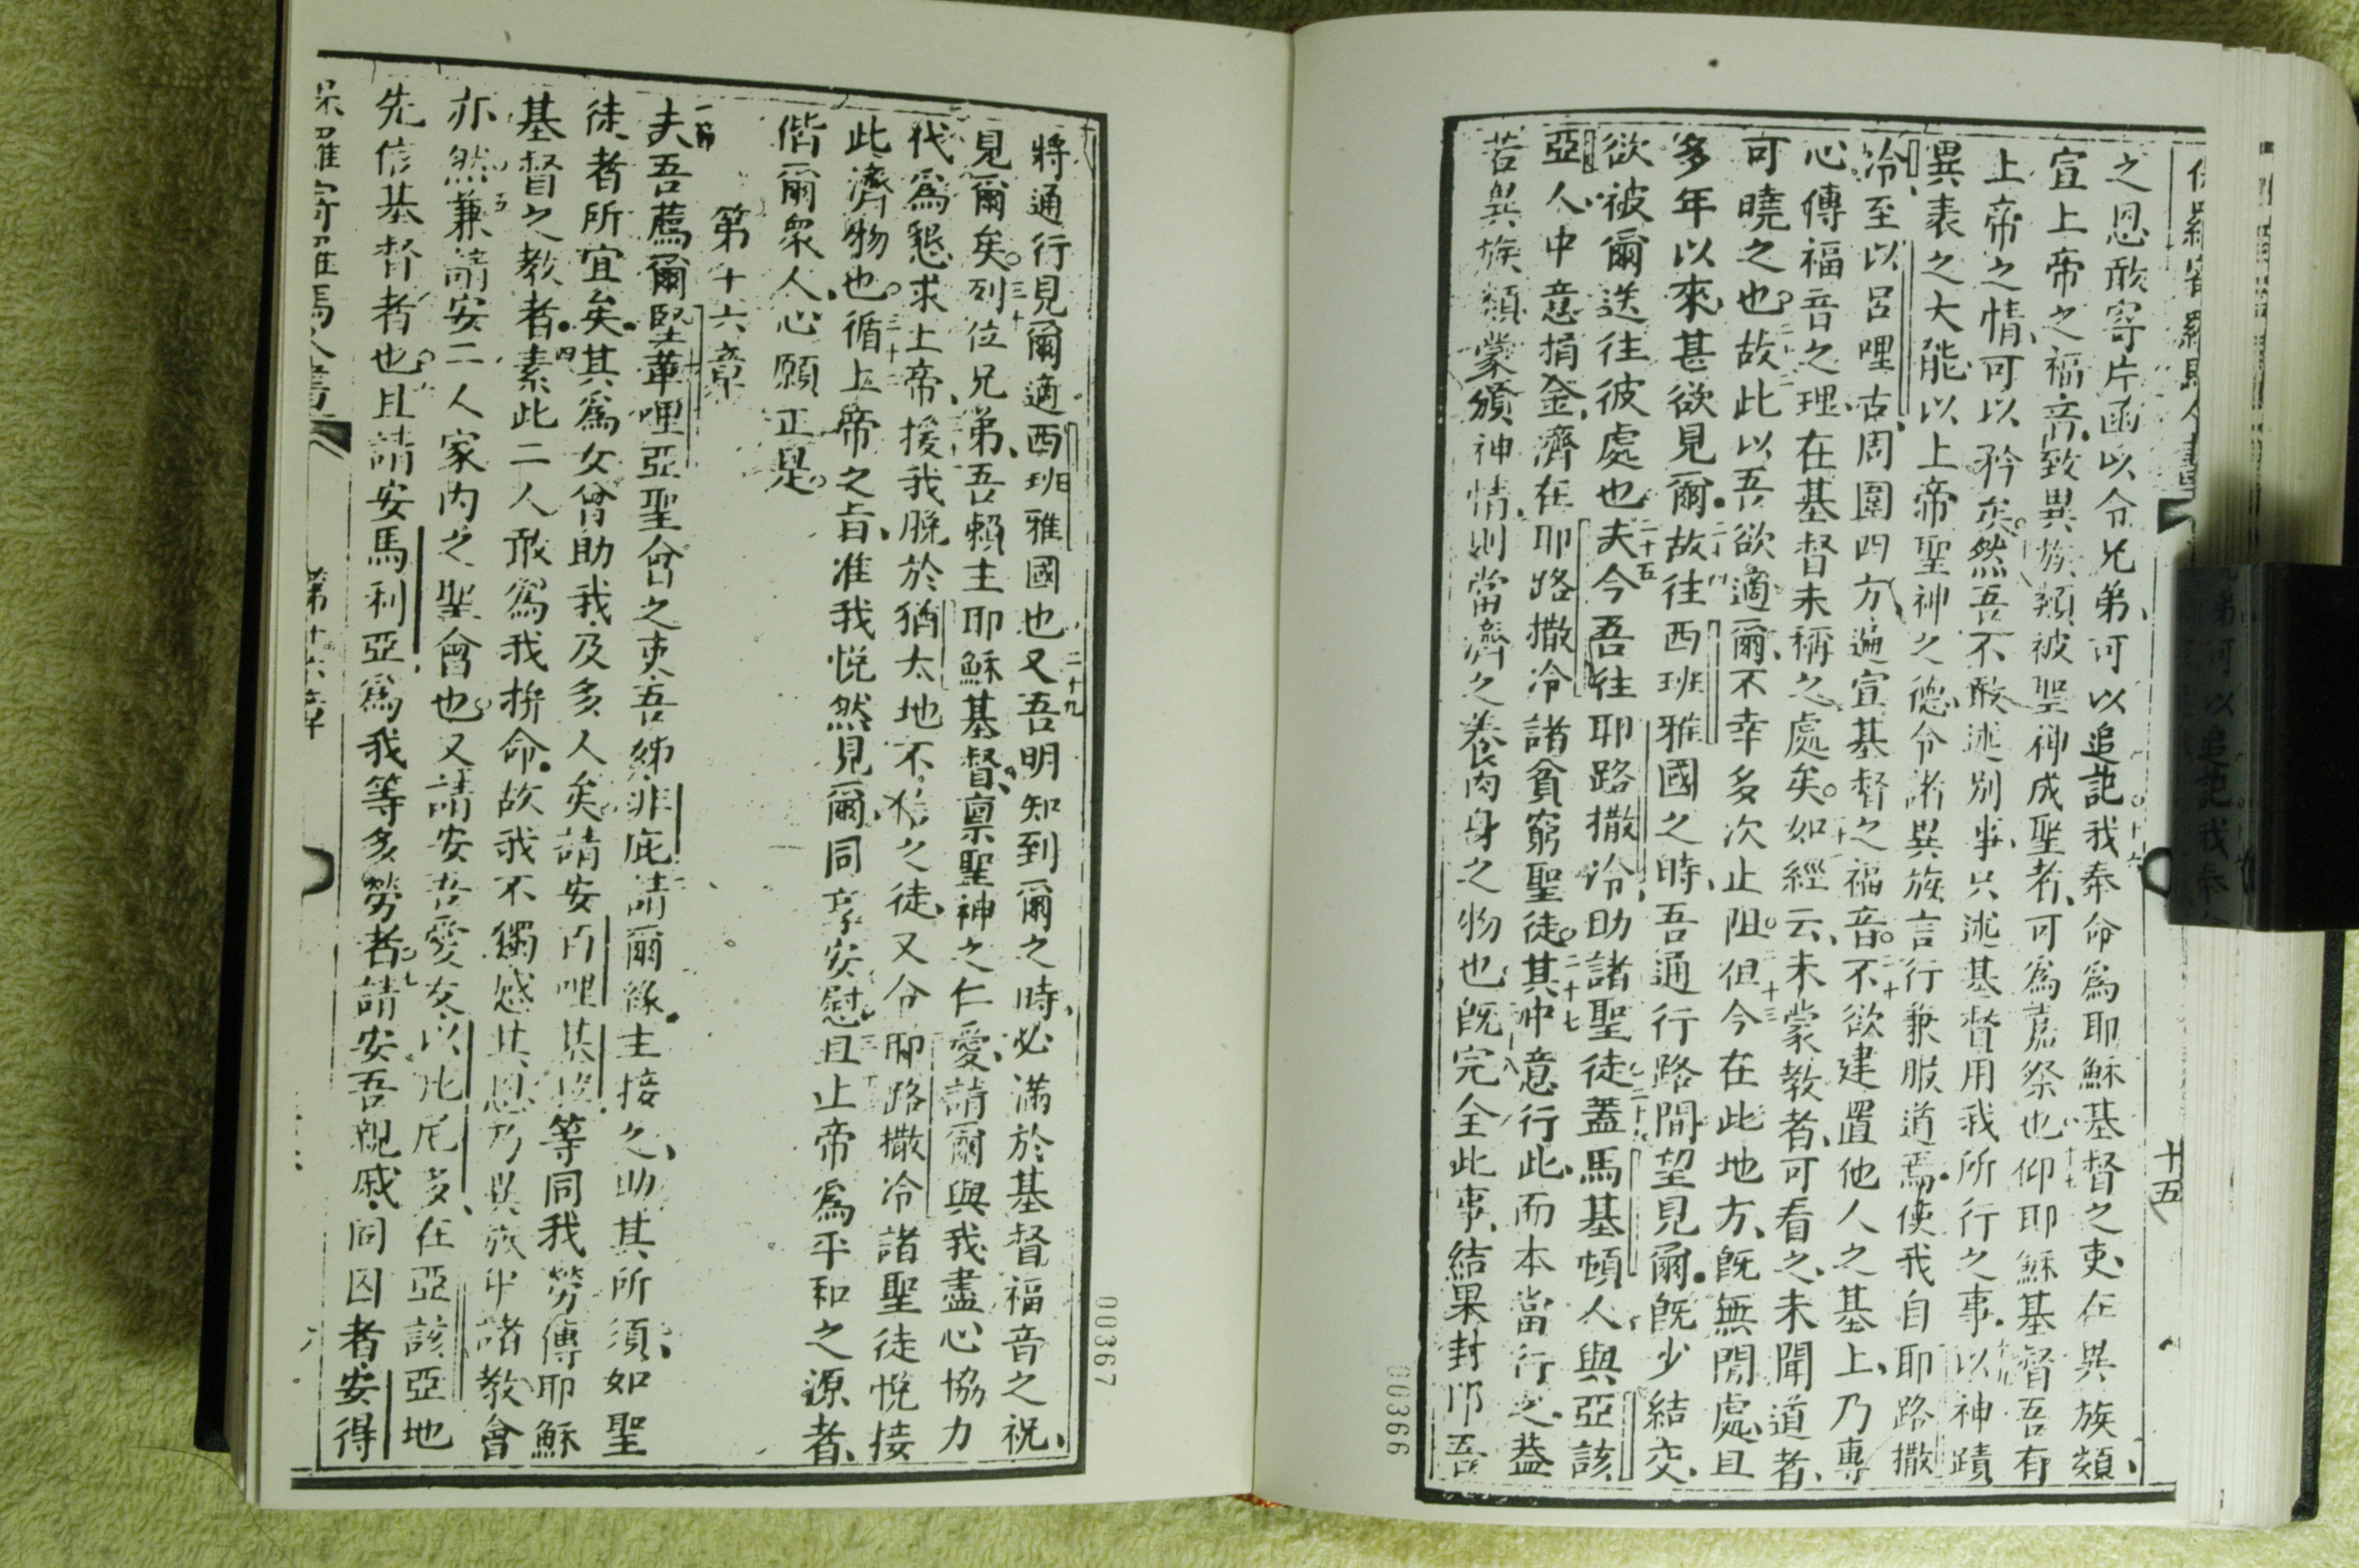 之恩敢寄片函以令兄弟可以追記我奉命爲耶穌基督之吏在異族類
宣上帝之福音致異族類被聖神成聖者可爲嘉祭也仰耶穌基督吾有
上帝之情可以矜矣然吾不敢述別事只述基督用我所行之事以神蹟
異表之大能以上帝聖神之德令諸異族言行兼服道焉使我自耶路撒
冷至以呂哩古周圍四方遍宣基督之福音不欲建置他人之基上乃專
心傳福音之理在基督未稱之處矣如經云未蒙教者可看之未聞道者
可曉之也故此以吾欲適爾不幸多次止阻但今在此地方旣無閒處且
多年以來甚欲見爾故往西班雅國之時吾通行路間望見爾旣少結交
欲被爾送往彼處也夫今吾往耶路撒冷助諸聖徒蓋馬基頓人與亞該
亞人中意捐金濟在耶路撒冷諸貧窮聖徒其中意行此而本當行之蓋
若異族類蒙頒神情則當濟之養肉身之物也旣完全此事結果封印吾
十五
00366
將通行見爾適西班雅國也又吾明知到爾之時必滿於基督福音之祝
見爾矣列位兄弟吾賴主耶穌基督稟聖神之仁愛請爾與我盡心協力
代爲懇求上帝援我脫於猶太地不信之徒又令耶路撒冷諸聖徒悅接
此濟物也循上帝之旨准我悅然見爾同享安慰且上帝爲平和之源者
偕爾眾人心願正是
第十六章
夫吾薦爾堅革哩亞聖會之吏吾姊非庇請爾緣主接之助其所須如聖
徒者所宜矣其爲女曾助我及多人矣請安百哩其拉等同我勞傳耶穌
基督之教者素此二人敢爲我拚命故我不獨感其恩乃異族中諸教會
亦然兼請安二人家內之聖會也又請安吾愛友以比尼多在亞該亞地
先信基督者也且請安馬利亞爲我等多勞者請安吾親戚同囚者安得
保羅寄羅馬人書
第十六章
00367